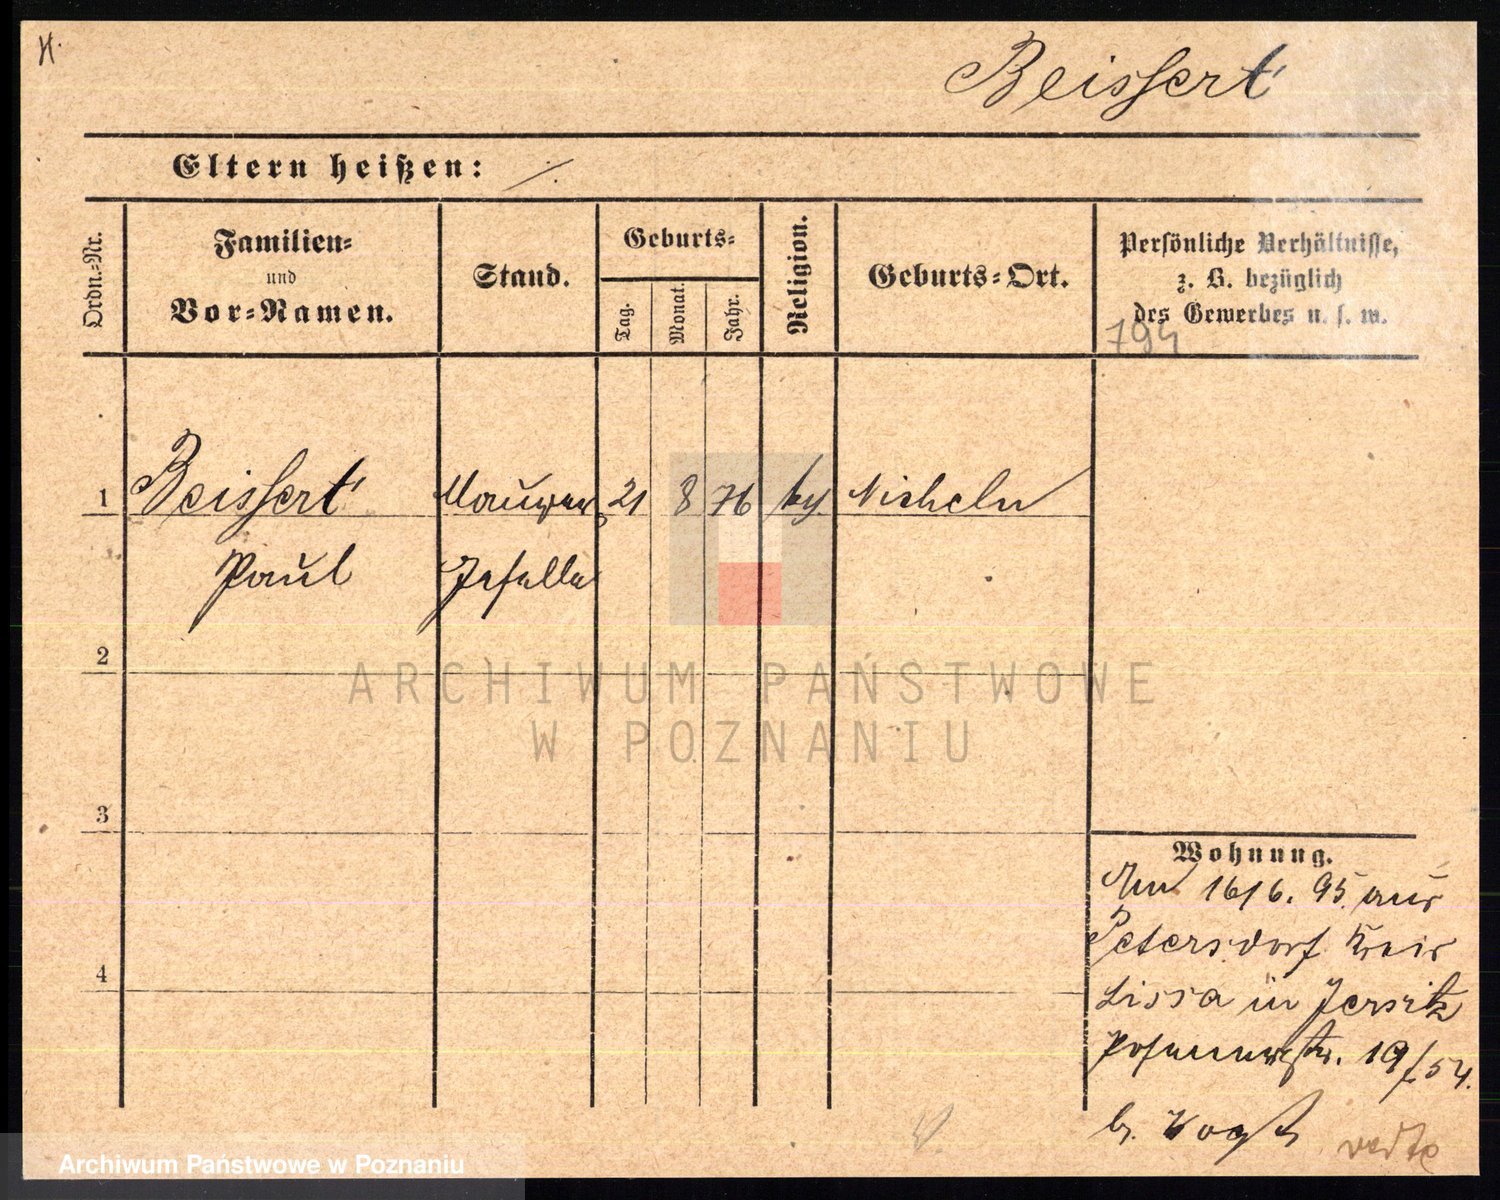 H.
Beissert
Eltern heißen: /.
Ordn.-Nr.
Familien-
und
Vor-Namen.
Stand.
Geburts-
Tag.
Monat.
Jahr.
Religion.
Geburts-Ort.
Persönliche Verhältnisse,
z. B. bezüglich
des Gewerbes u. s. w.
794
1 Beissert Maurer 21 8 76 Nicheln
Paul Geselle
2
ARCHIWUM PAŃSTWOWE
W POZNANIU
3
4
Wohnung.
Am 16/6. 95. aus
Petersdorf Kreis
Lissa in Jersitz
Posenerstr. 19/54.
b. Vogt
Archiwum Państwowe w Poznaniu